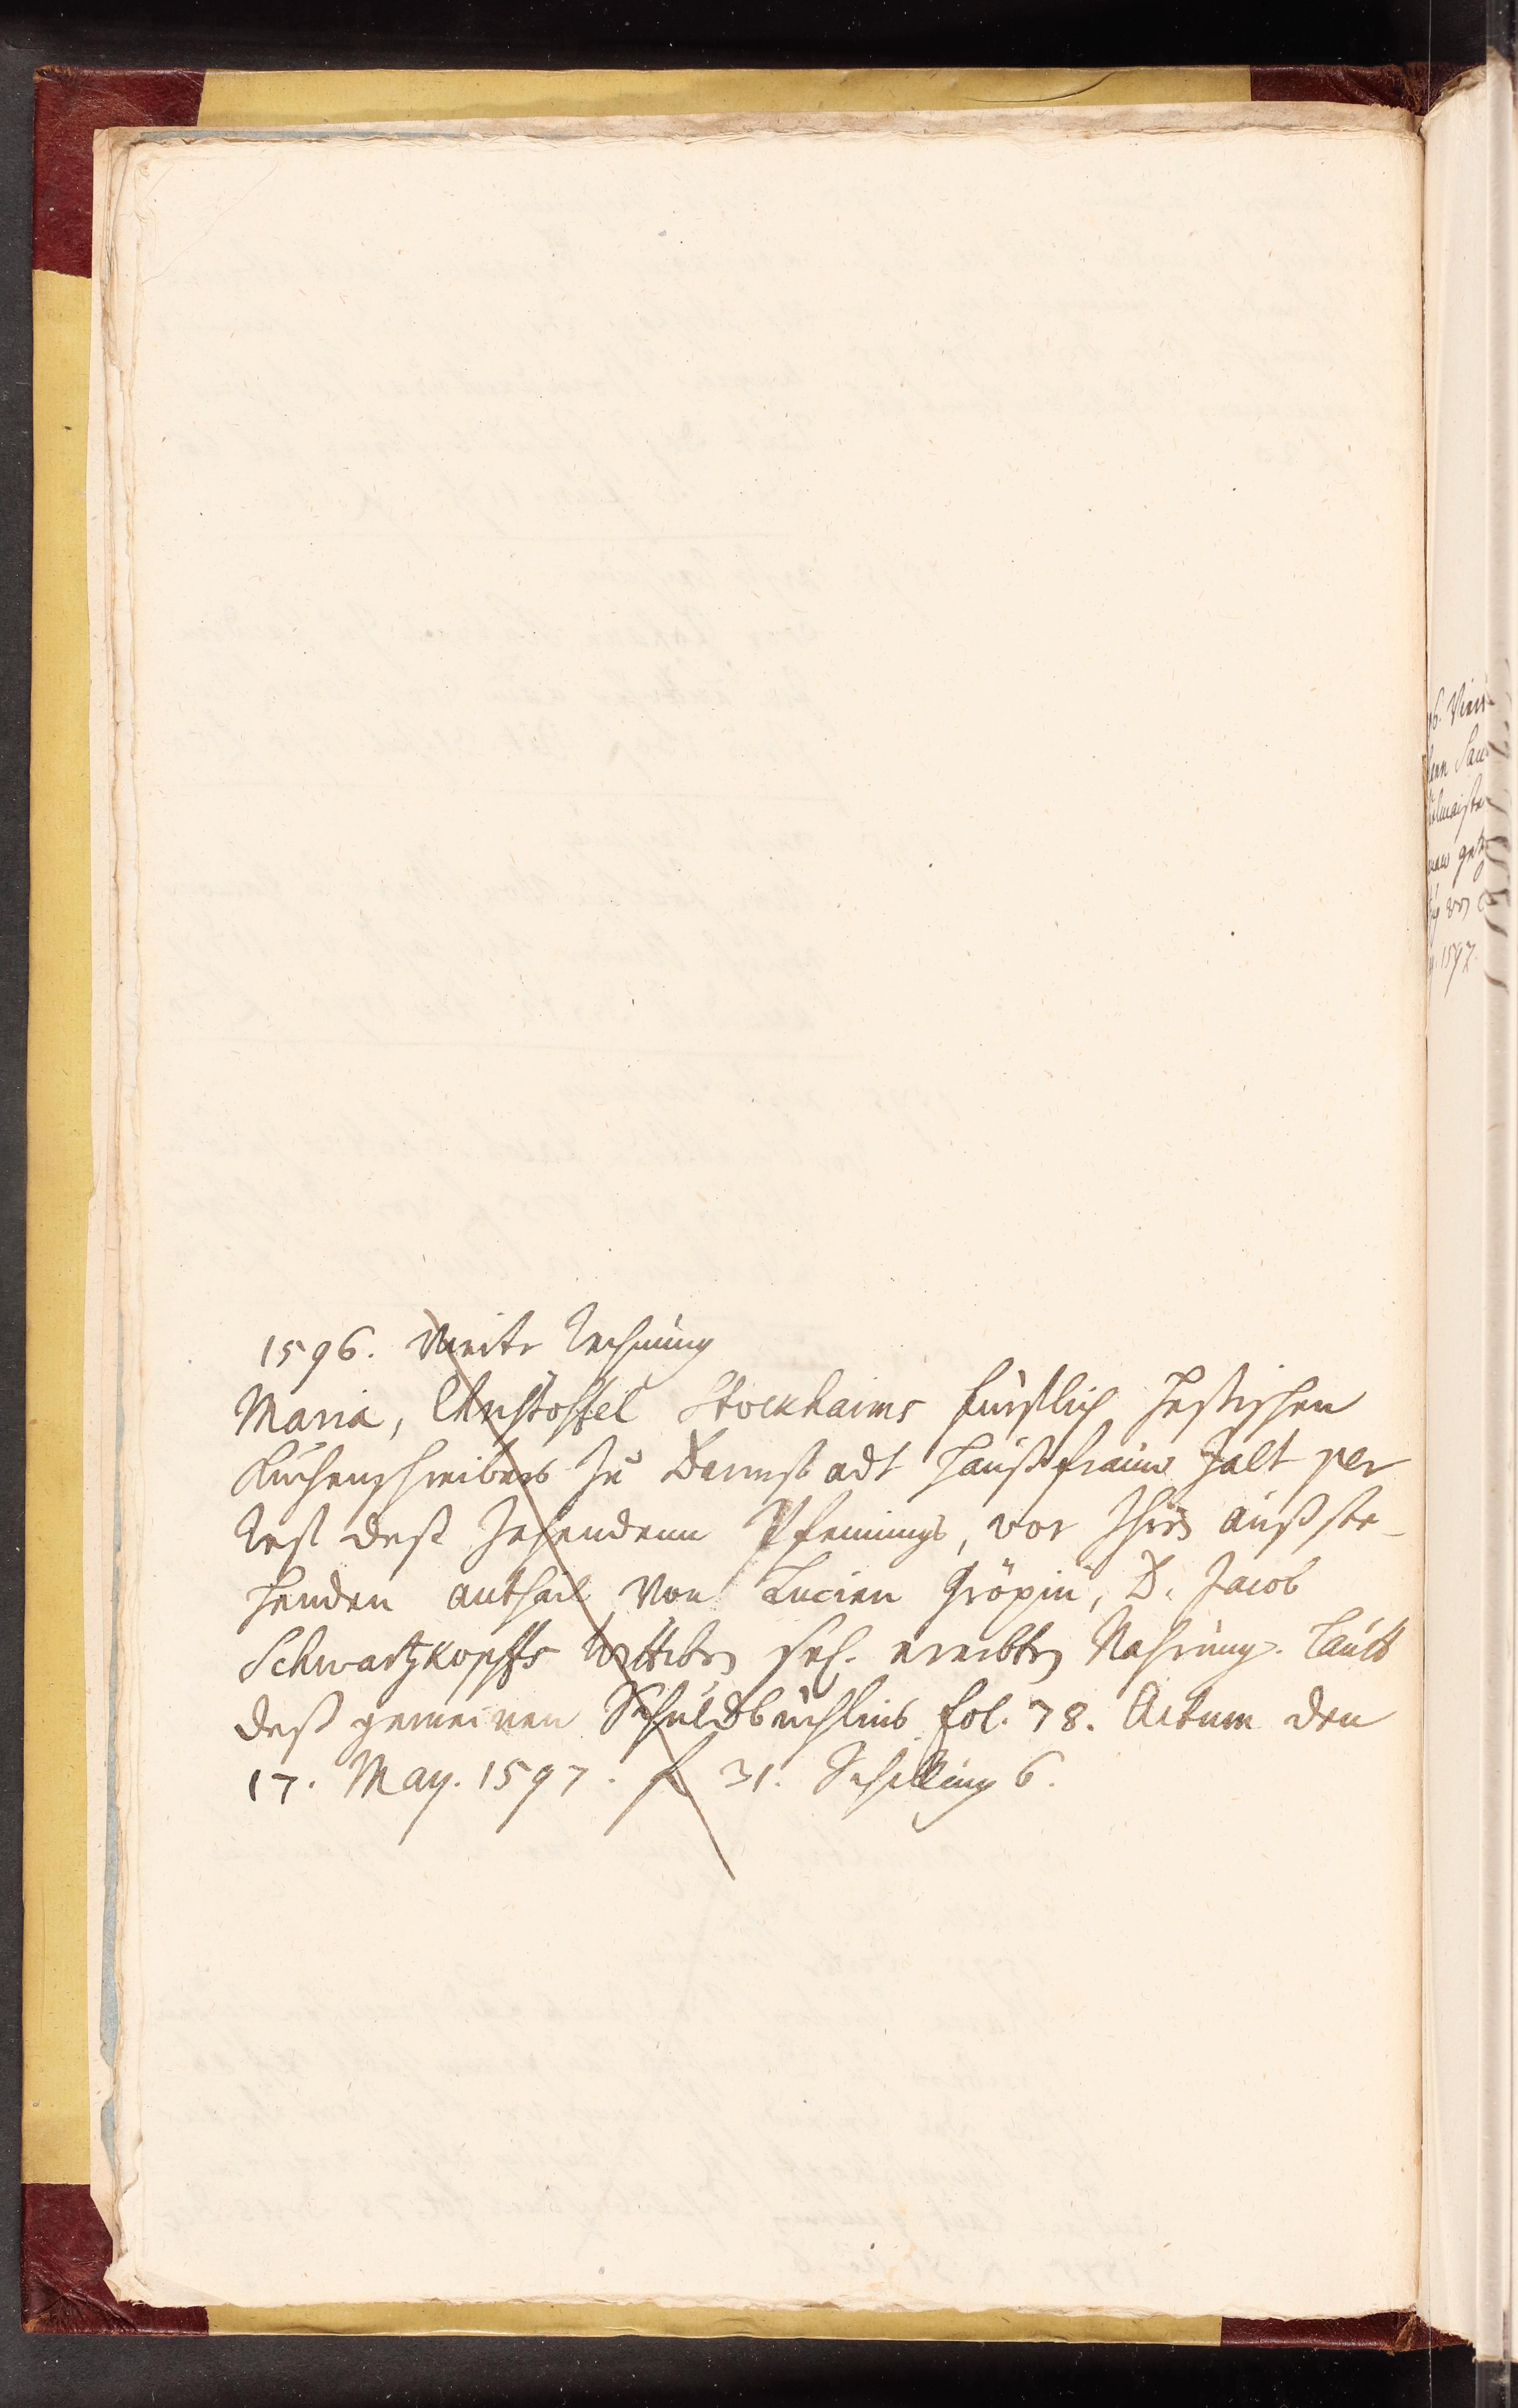 1596. Vierte Rechnung
Maria, Christoffel Stockhaims fürstlich Hessischen
Kuchenschreibers zu Darmstadt Haußfrauw zalt per
Rest deß Zehendenn Pfennings, vor Ihrn außste-
henden antheil von Lucien Gröpin, D. Jacob
Schwartzkopffs Wittibn sel. ererbten Nahrung. Lautt
deß gemeinen Schuldbüchlins fol. 78. Actum den
17. May. 1597. fl 31. Schilling 6.
1597.